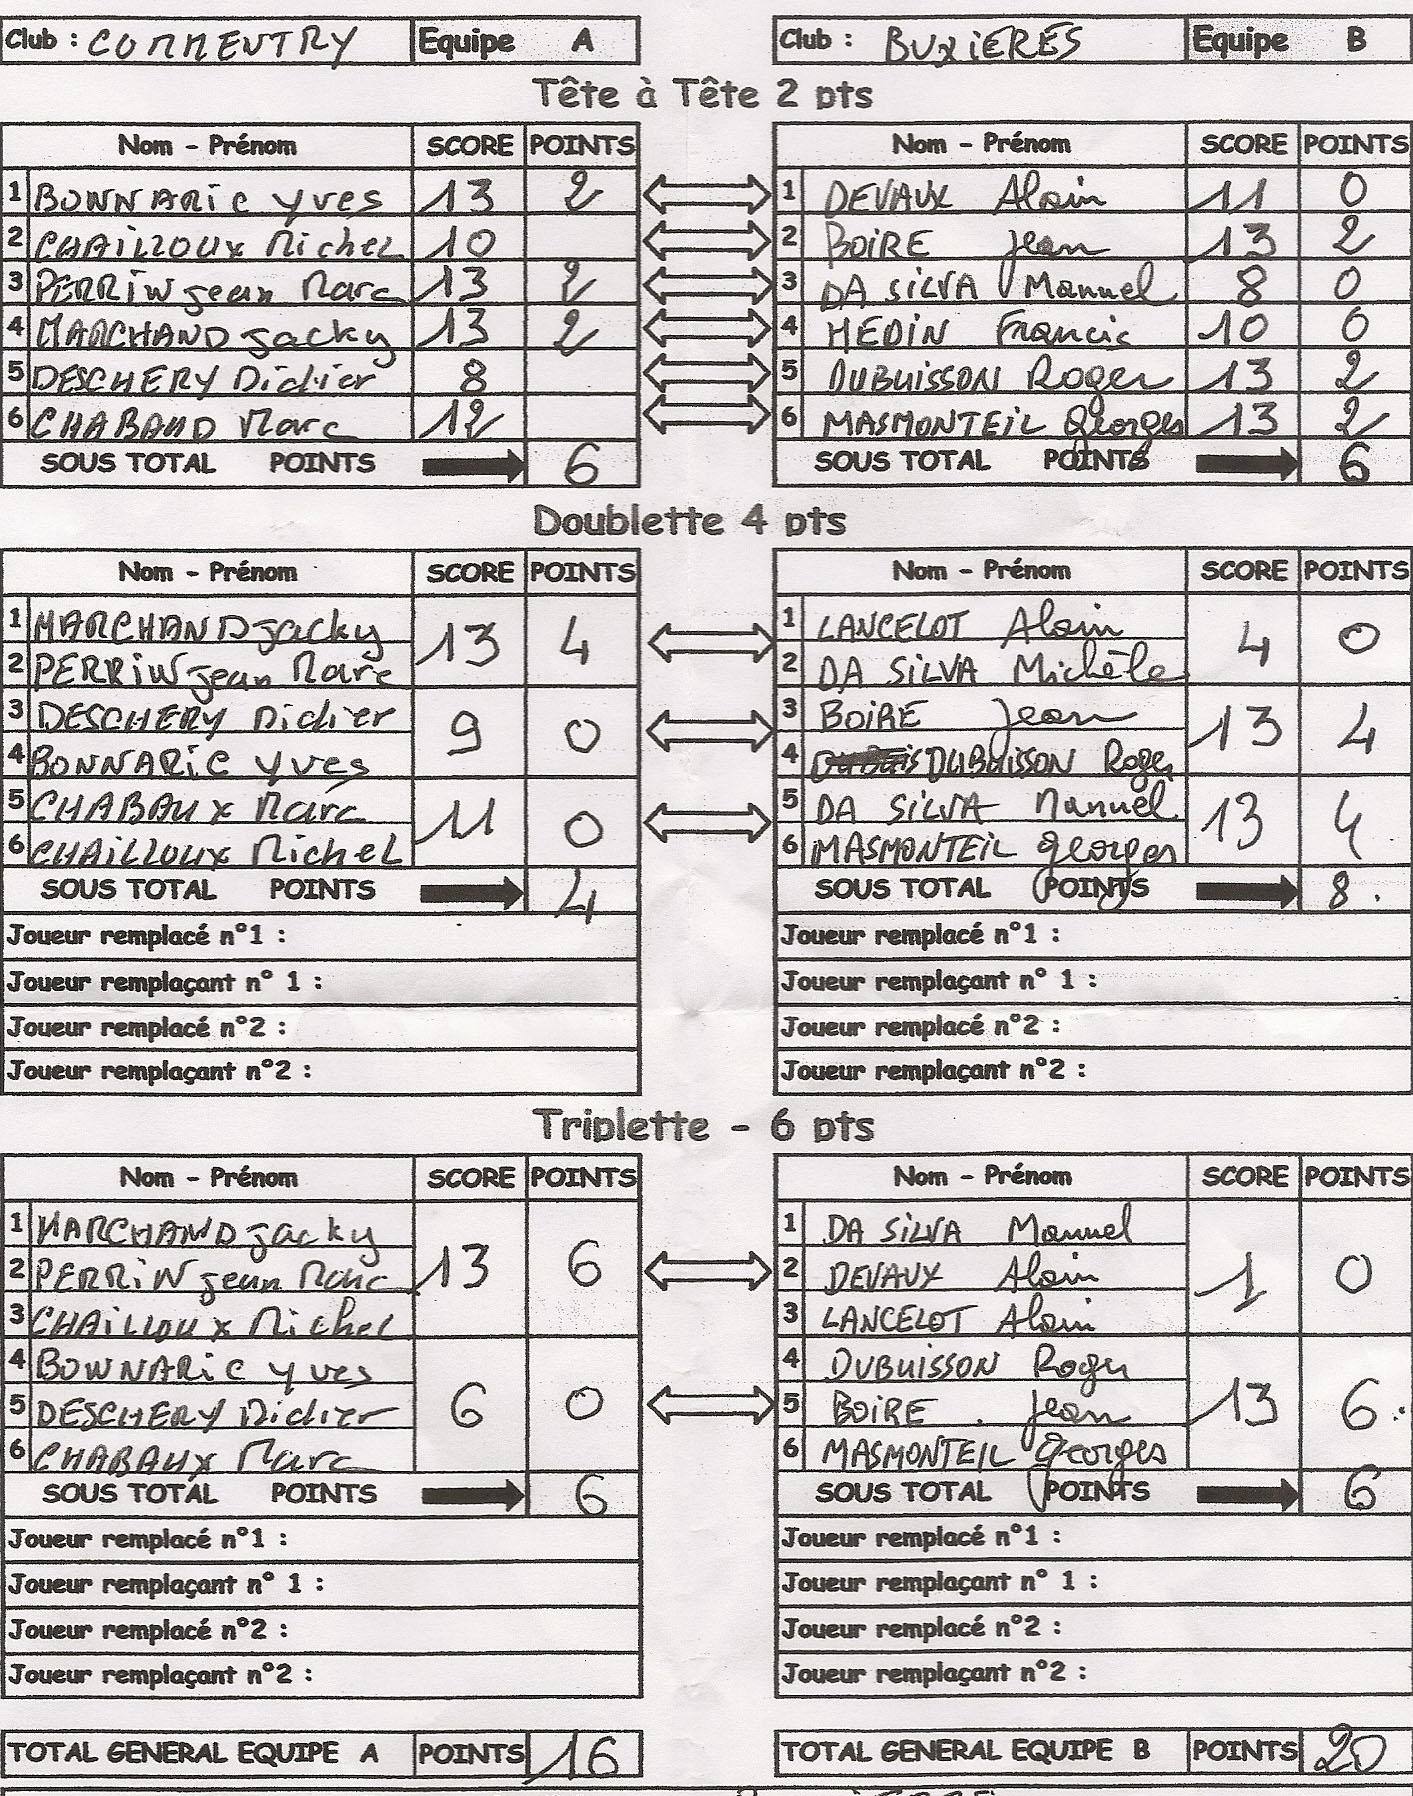 Club : COMMENTRY Equipe A Club : BUXIERES Equipe B
Tête à Tête 2 pts
Nom - Prénom SCORE POINTS Nom - Prénom SCORE POINTS
1 BONNARIC Yves 13 2 1 DEVAUX Alain 11 0
2 CHAILLOUX Michel 10 2 BOIRE Jean 13 2
3 PERRIN Jean Marc 13 2 3 DA SILVA Manuel 8 0
4 MARCHAND Jacky 13 2 4 MEDIN Francis 10 0
5 DESCHERY Didier 8 5 DUBUISSON Roger 13 2
6 CHABAUD Marc 12 6 MASMONTEIL Georges 13 2
SOUS TOTAL POINTS 6 SOUS TOTAL POINTS 6
Doublette 4 pts
Nom - Prénom SCORE POINTS Nom - Prénom SCORE POINTS
1 MARCHAND Jacky 13 4 1 LANCELOT Alain 4 0
2 PERRIN Jean Marc 2 DA SILVA Michèle
3 DESCHERY Didier 9 0 3 BOIRE Jean 13 4
4 BONNARIC Yves 4 DUBUISSON Roger
5 CHABAUX Marc 11 0 5 DA SILVA Manuel 13 4
6 CHAILLOUX Michel 6 MASMONTEIL Georges
SOUS TOTAL POINTS 4 SOUS TOTAL POINTS 8
Joueur remplacé n°1 : Joueur remplacé n°1 :
Joueur remplaçant n° 1 : Joueur remplaçant n° 1 :
Joueur remplacé n°2 : Joueur remplacé n°2 :
Joueur remplaçant n°2 : Joueur remplaçant n°2 :
Triplette - 6 pts
Nom - Prénom SCORE POINTS Nom - Prénom SCORE POINTS
1 MARCHAND Jacky 1 DA SILVA Manuel
2 PERRIN Jean Marc 13 6 2 DEVAUX Alain 1 0
3 CHAILLOUX Michel 3 LANCELOT Alain
4 BONNARIC Yves 4 DUBUISSON Roger
5 DESCHERY Didier 6 0 5 BOIRE Jean 13 6
6 CHABAUX Marc 6 MASMONTEIL Georges
SOUS TOTAL POINTS 6 SOUS TOTAL POINTS 6
Joueur remplacé n°1 : Joueur remplacé n°1 :
Joueur remplaçant n° 1 : Joueur remplaçant n° 1 :
Joueur remplacé n°2 : Joueur remplacé n°2 :
Joueur remplaçant n°2 : Joueur remplaçant n°2 :
TOTAL GENERAL EQUIPE A POINTS 16 TOTAL GENERAL EQUIPE B POINTS 20